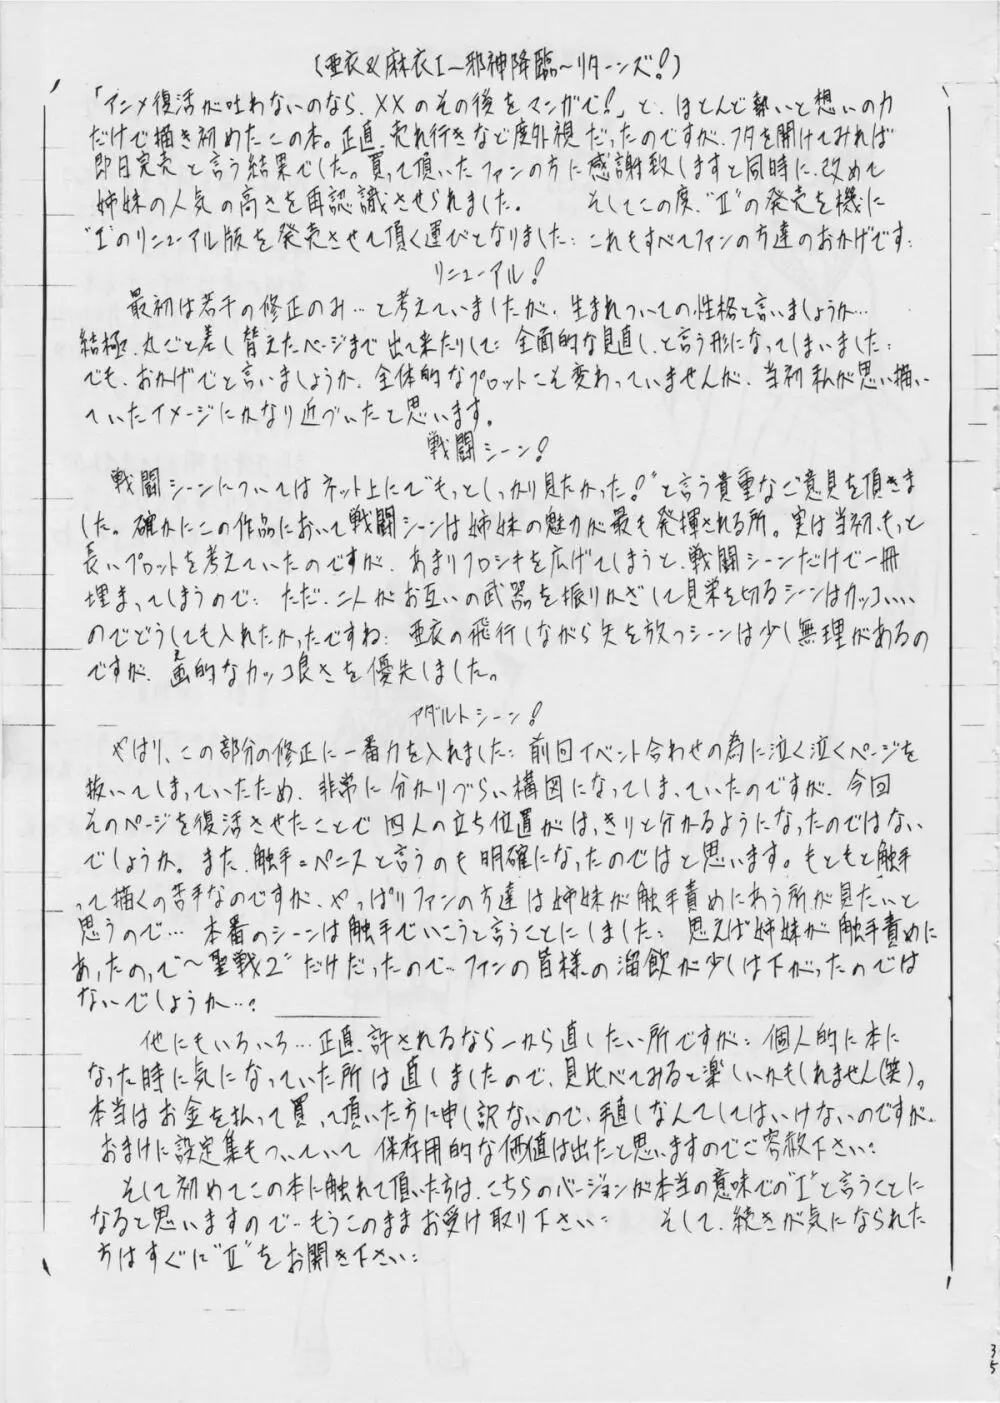 (亜衣&麻衣Ⅰ〜邪神降臨〜リターンズ!)
「アニメ復活が叶わないのなら、XXのその後をマンガで!」と、ほとんど勢いと想いの力
だけで描き初めたこの本。正直、売れ行きなど度外視だったのですが、フタを開けてみれば
即日完売と言う結果でした。買って頂いたファンの方に感謝致しますと同時に、改めて
姉妹の人気の高さを再認識させられました。 そしてこの度、"Ⅱ"の発売を機に
"Ⅰ"のリニューアル版を発売させて頂く運びとなりました… これもすべてファンの方達のおかげです…
リニューアル!
最初は若干の修正のみ…と考えていましたが、生まれついての性格と言いましょうか…
結極、丸ごと差し替えたページまで出て来たりして… 全面的な見直し、と言う形になってしまいました…
でも、おかげでと言いましょうか、全体的なプロットこそ変わっていませんが、当初私が思い描い
ていたイメージにかなり近づいたと思います。
戦闘シーン!
戦闘シーンについてはネット上にて"もっとしっかり見たかった!"と言う貴重なご意見を頂きま
した。確かにこの作品において戦闘シーンは姉妹の魅力が最も発揮される所。実は当初、もっと
長いプロットを考えていたのですが、あまりフロシキを広げてしまうと、戦闘シーンだけで一冊
埋まってしまうので… ただ、二人がお互いの武器を振りかざして見栄を切るシーンはカッコいい
のでどうしても入れたかったですね… 亜衣の飛行しながら矢を放つシーンは少し無理があるの
ですが、画的なカッコ良さを優先しました。
アダルトシーン!
やはり、この部分の修正に一番力を入れました… 前回イベント合わせの為に泣く泣くページを
抜いてしまっていたため、非常に分かりづらい構図になってしまっていたのですが、今回
そのページを復活させたことで四人の立ち位置がはっきりと分かるようになったのではない
でしょうか。また、触手=ペニスと言うのも明確になったのではと思います。もともと触手
って描くの苦手なのですが、やっぱりファンの方達は姉妹が触手責めにあう所が見たいと
思うので… 本番のシーンは触手でいこうと言うことにしました… 思えば姉妹が触手責めに
あったのって"〜聖戦2"だけだったので…ファンの皆様の溜飲が少しは下がったのでは
ないでしょうか…?
他にもいろいろ…正直、許されるなら一から直したい所ですが… 個人的に本に
なった時に気になっていた所は直しましたので、見比べてみると楽しいかもしれません(笑)。
本当はお金を払って買って頂いた方に申し訳ないので、手直しなんてしてはいけないのですが、
おまけに設定集もついていて 保存用的な価値は出たと思いますのでご容赦下さい…
そして初めてこの本に触れて頂いた方は、こちらのバージョンが本当の意味での"Ⅰ"と言うことに
なると思いますので…もうこのままお受け取り下さい… そして、続きが気になられた
方はすぐに"Ⅱ"をお開き下さい…
35